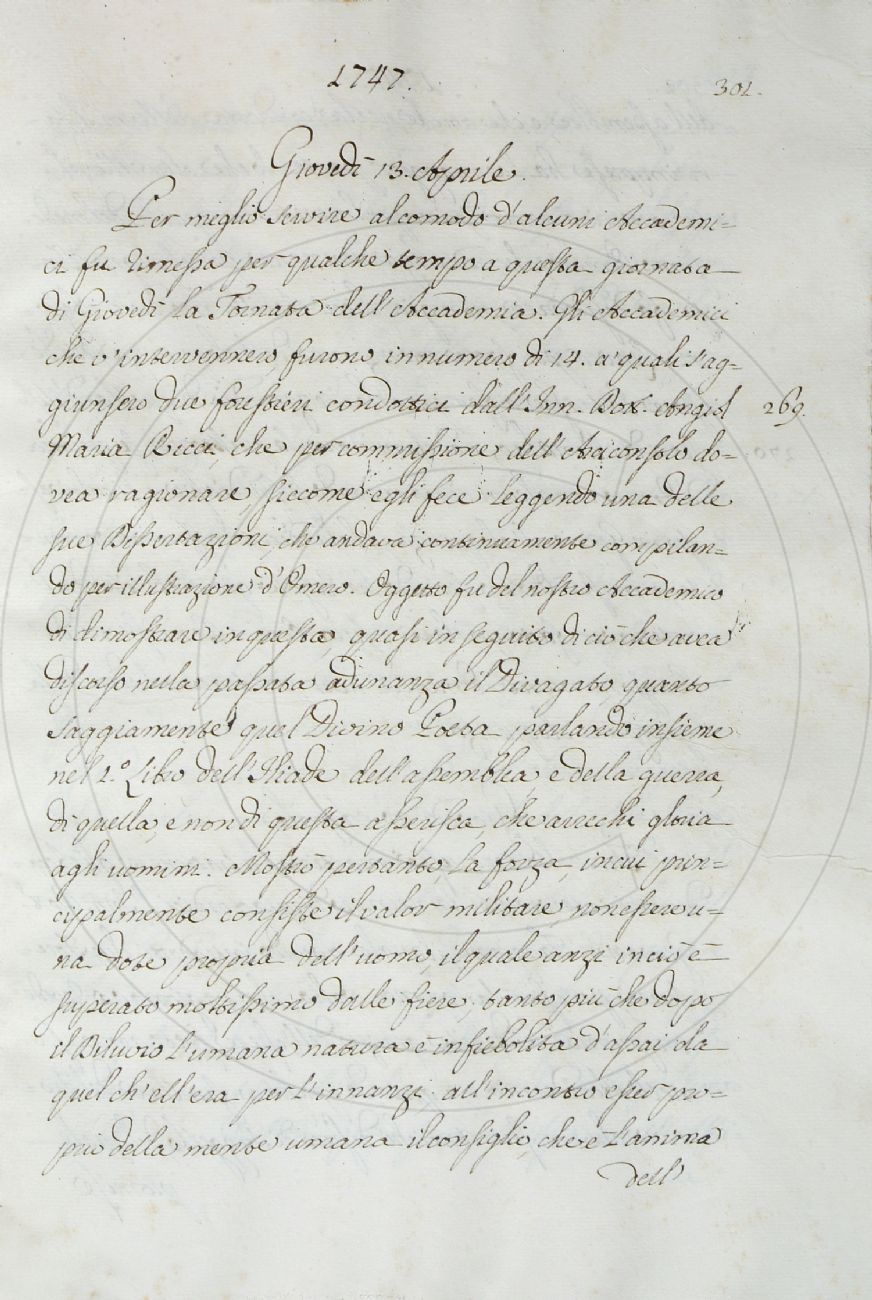 1747.
301.
Giovedì 13. Aprile.
Per meglio servire al comodo d'alcuni Accademi=
ci fu rimessa per qualche tempo a questa giornata
di Giovedì la Tornata dell'Accademia. Gli Accademici
che v'intervennero furono in numero di 14. a' quali s'ag=
giunsero due forestieri condottici dall'Inn. Dott. Angiol
269.
Maria Ricci, che per commissione dell'Arciconsolo do=
vea ragionare, siccome egli fece leggendo una delle
sue Dissertazioni, che andava continuamente compilan=
do per illustrazione d'Omero. Oggetto fu del nostro Accademico
di dimostrare in questa, quasi in seguito di ciò che avea
discorso nella passata adunanza il Divagato, quanto
saggiamente quel Divino Poeta parlando insieme
nel 2.º Libro dell'Iliade dell'assemblea, e della guerra,
di quella, e non di questa asserisca, che arrechi gloria
agli uomini. Mostrò pertanto, la forza, in cui prin=
cipalmente consiste il valor militare, non essere u=
na dote propria dell'uomo, il quale anzi in ciò è
superato moltissimo dalle fiere, tanto più che dopo
il Diluvio l'umana natura è infiebolita d'assai da
quel ch'ell'era per l'innanzi, all'incontro esser pro=
prio della mente umana il consiglio, che è l'anima
dell'